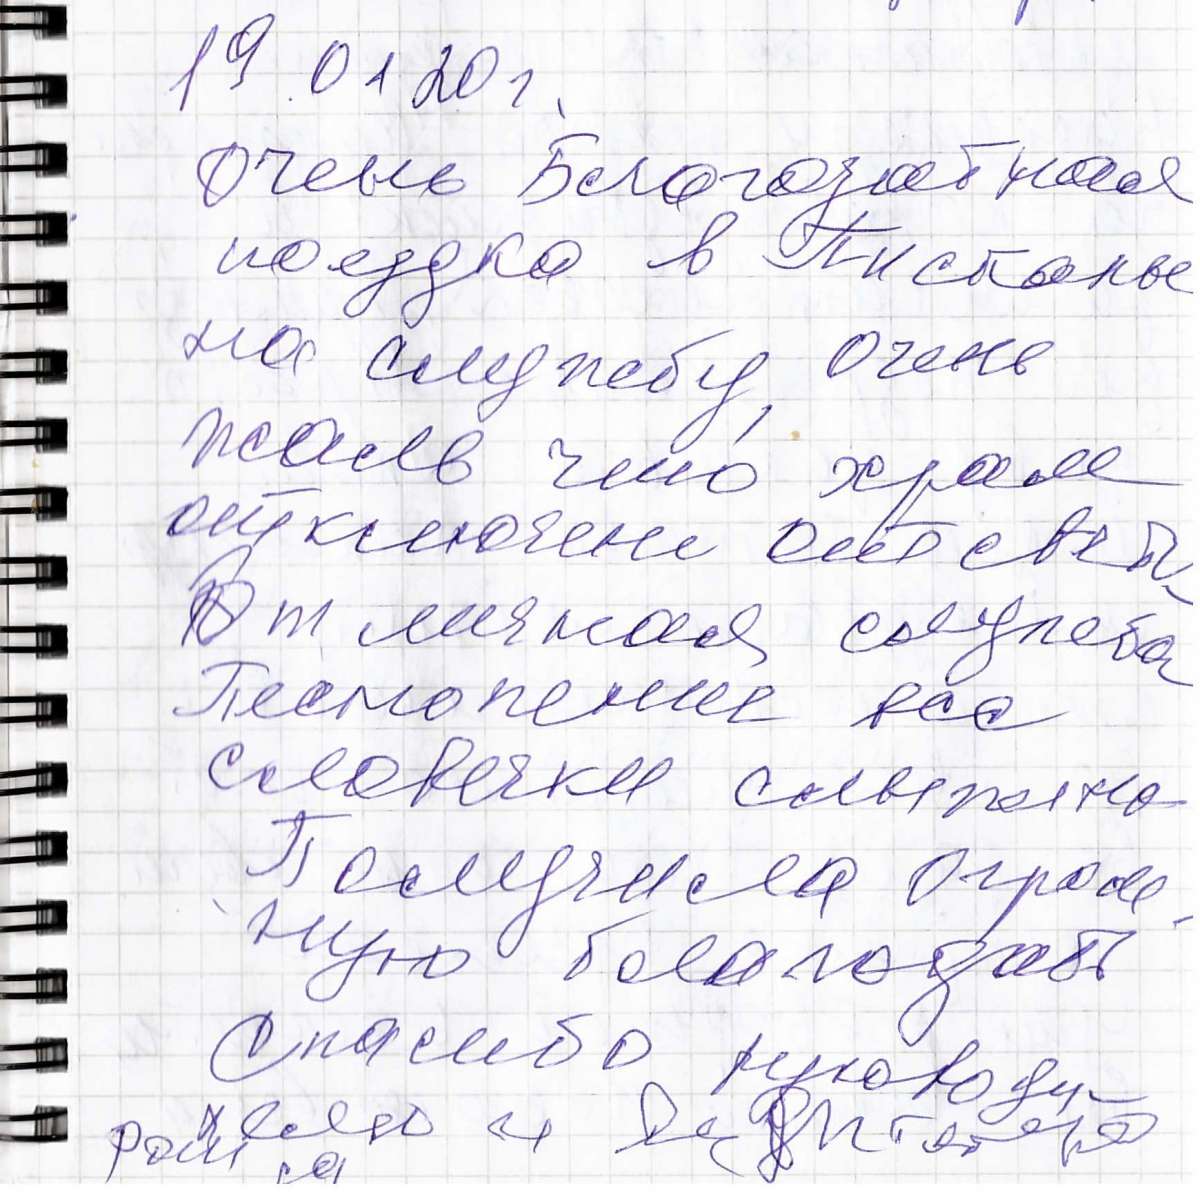 19 01 20 г.
Очень Благодатная
поездка в Тистопье
на службу, очень
жаль что храм
отключен от свет.
Отличная служба
Песнопение все
словечки слышно
Получила огром
ную благодать
Спасибо руководи
телю и